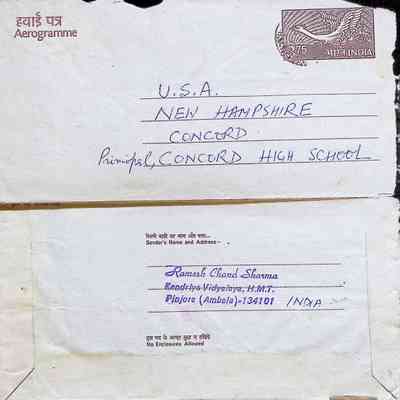 हवाई पत्र
Aerogramme
275
भारत INDIA
U.S.A.
NEW HAMPSHIRE
CONCORD
Principal, CONCORD HIGH SCHOOL
Sender's Name and Address:-
Ramesh Chand Sharma
Kendriya Vidyalaya, H.M.T.
Pinjore (Ambala)-134101 INDIA
इस पत्र के अन्दर कुछ न रखिये
No Enclosures Allowed